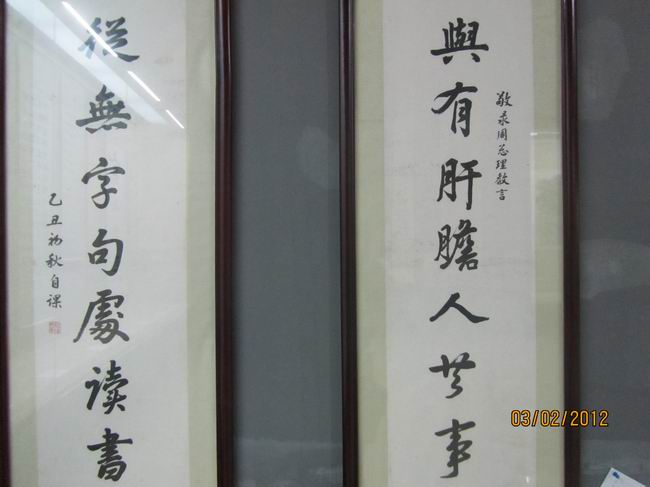 與有肝膽人共事
敬录周总理教言
從無字句處读書
乙丑初秋自课
03/02/2012